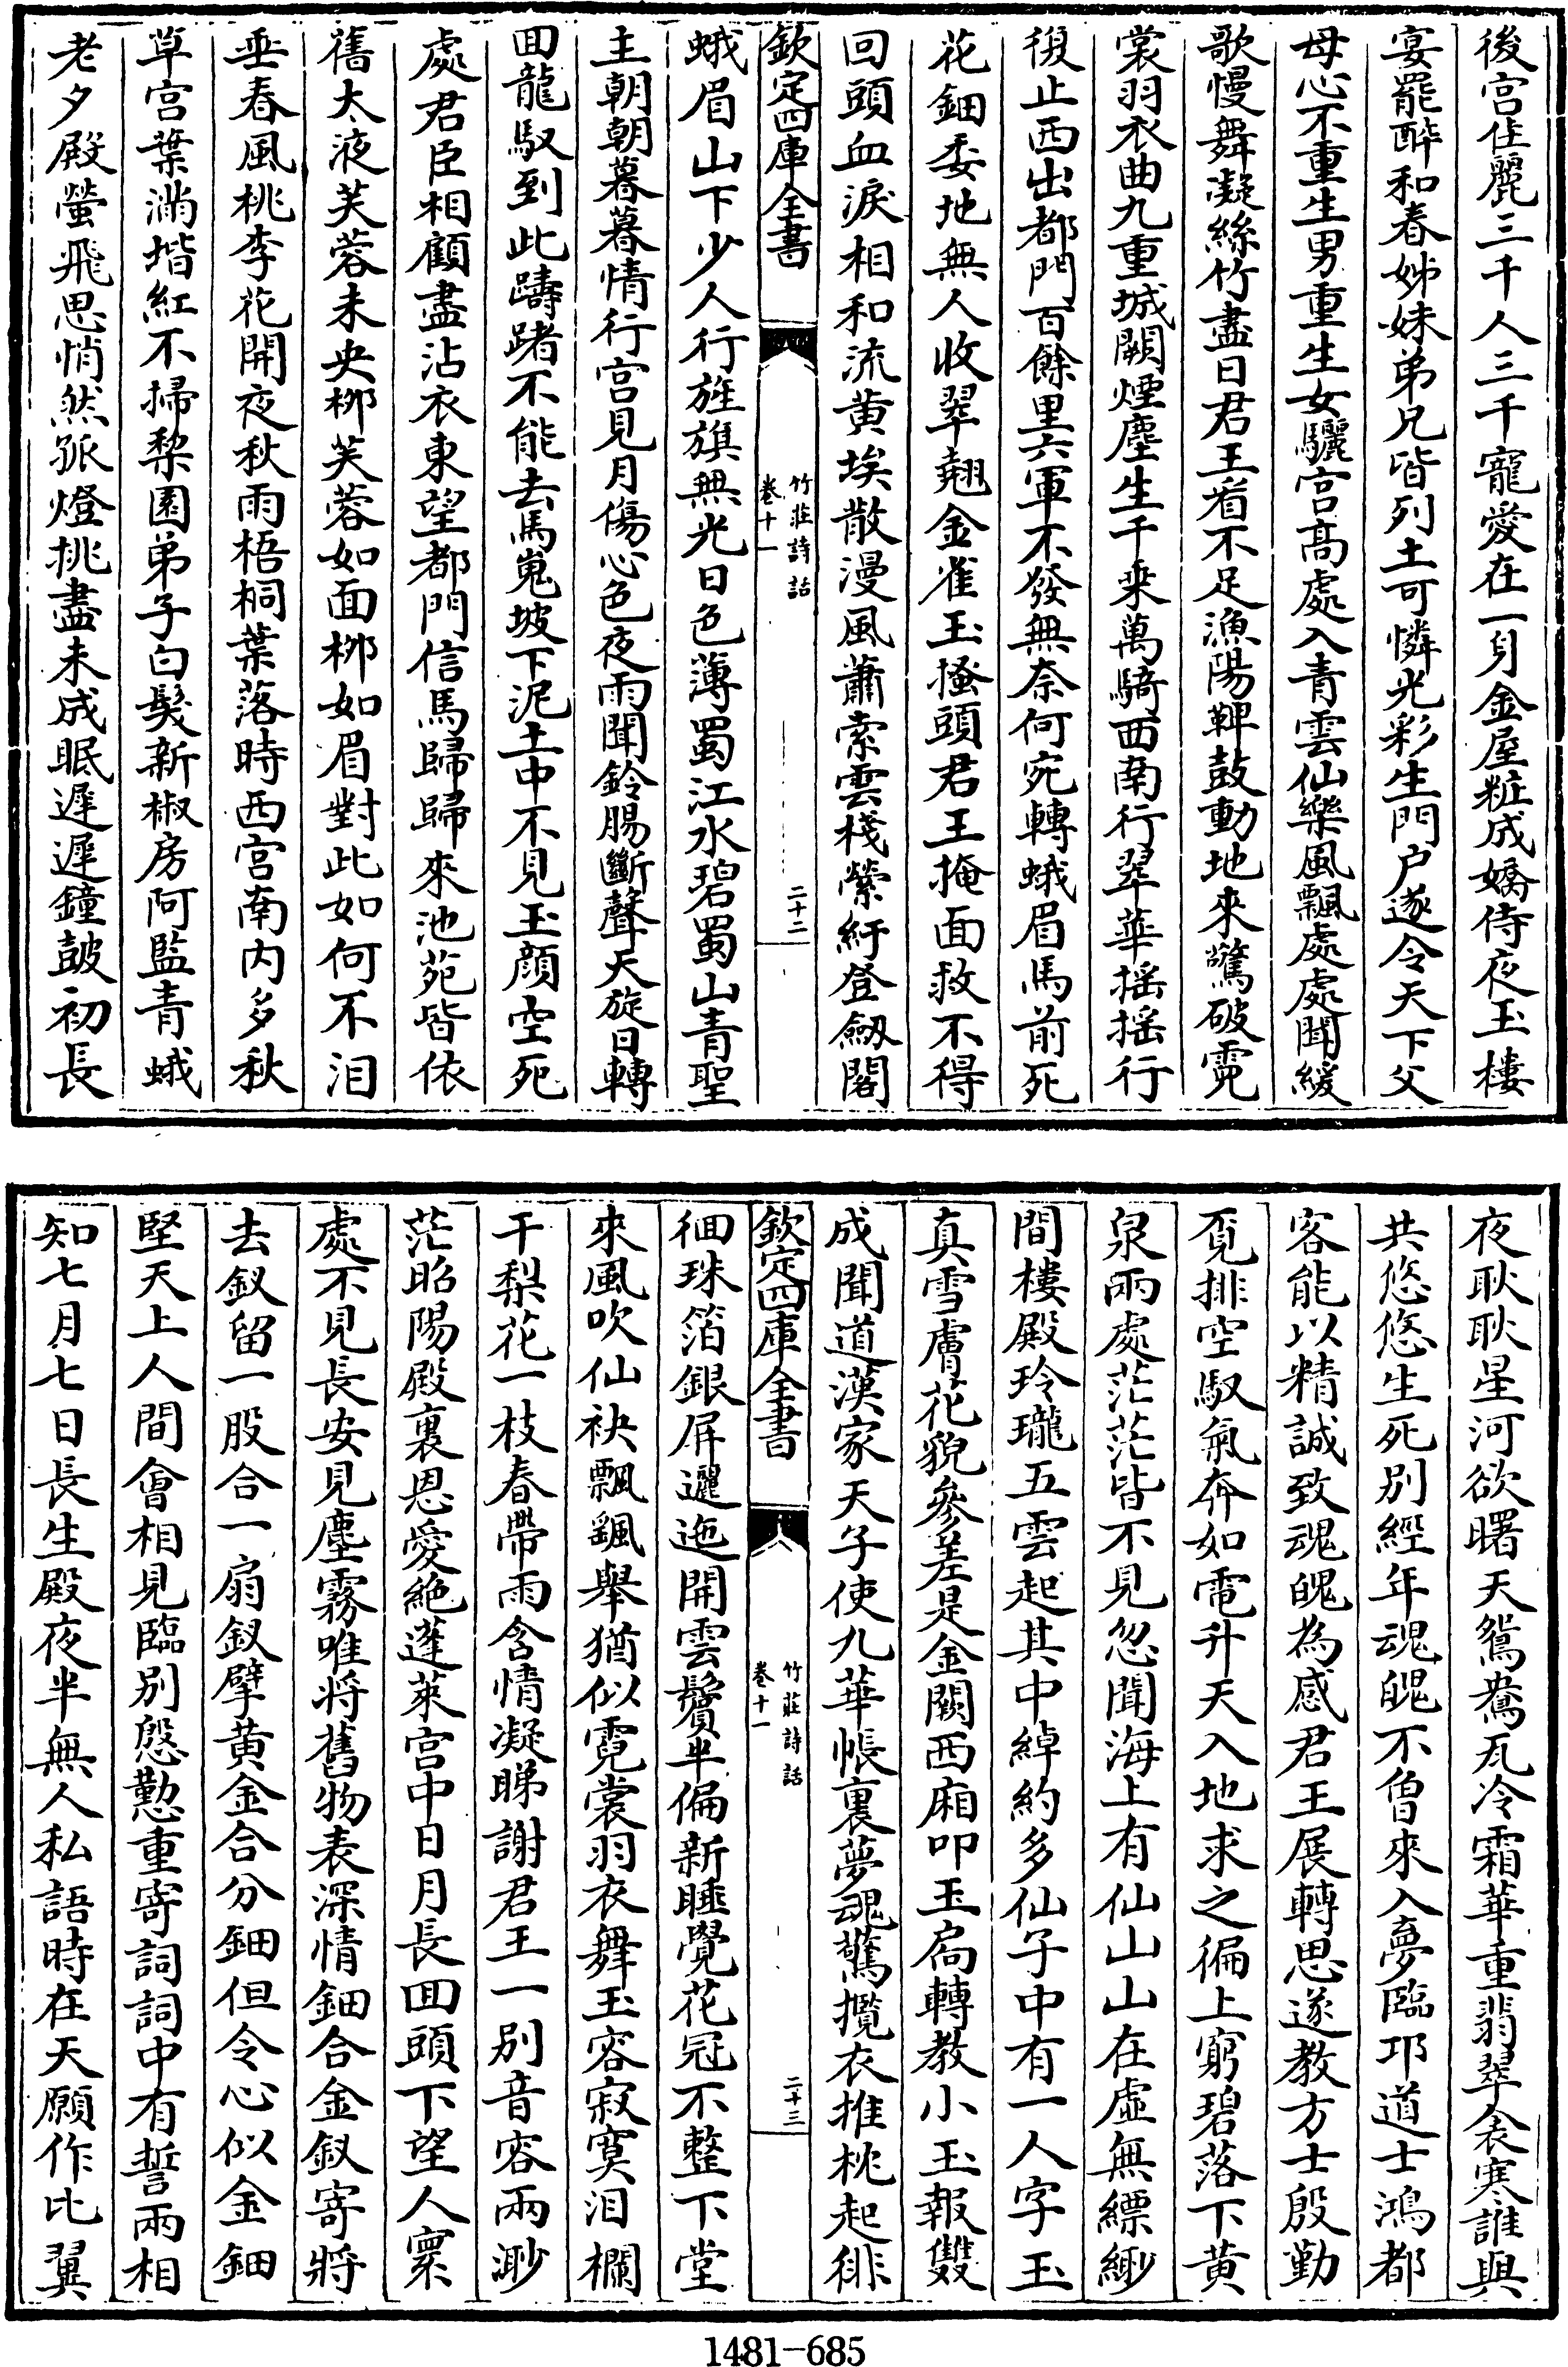 後宮佳麗三千人三千寵愛在一身金屋粧成嬌侍夜玉樓
宴罷醉和春姊妹弟兄皆列土可憐光彩生門户遂令天下父
母心不重生男重生女驪宫髙處入青雲仙樂風飄處處聞緩
歌慢舞凝絲竹盡日君王看不足漁陽鞞鼓動地來驚破霓
裳羽衣曲九重城闕煙塵生千乗萬騎西南行翠華揺揺行
復止西出都門百餘里六軍不發無奈何宛轉蛾眉馬前死
花鈿委地無人收翠翹金雀玉搔頭君王掩面救不得
回頭血淚相和流黄埃散漫風蕭索雲棧縈紆登劔閣
欽定四庫全書
竹莊詩話
卷十一
二十二
蛾眉山下少人行旌旗無光日色薄蜀江水碧蜀山青聖
主朝朝暮暮情行宫見月傷心色夜雨聞鈴腸斷聲天旋日轉
囬龍馭到此躊躇不能去馬嵬坡下泥土中不見玉顔空死
處君臣相顧盡沾衣東望都門信馬歸歸來池苑皆依
舊太液芙蓉未央栁芙蓉如面栁如眉對此如何不泪
垂春風桃李花開夜秋雨梧桐葉落時西宫南内多秋
草宫葉滿堦紅不掃棃園弟子白髮新椒房阿監青蛾
老夕殿螢飛思悄然孤燈挑盡未成眠遲遲鐘鼓初長
夜耿耿星河欲曙天鴛鴦瓦冷霜華重翡翠衾寒誰與
共悠悠生死别經年魂魄不曾來入夢臨邛道士鴻都
客能以精誠致魂魄為感君王展轉思遂教方士殷勤
覓排空馭氣奔如電升天入地求之徧上窮碧落下黄
泉兩處茫茫皆不見忽聞海上有仙山山在虛無縹緲
間樓殿玲瓏五雲起其中綽約多仙子中有一人字玉
真雪膚花貌參差是金闕西廂叩玉扃轉教小玉報雙
成聞道漢家天子使九華帳裏夢魂驚攬衣推枕起徘
欽定四庫全書
竹莊詩話
卷十一
二十三
徊珠箔銀屏邐迤開雲鬢半偏新睡覺花冠不整下堂
來風吹仙袂飄颻舉猶似霓裳羽衣舞玉容寂寞泪欄
干梨花一枝春帶雨含情凝睇謝君王一别音容兩渺
茫昭陽殿裏恩愛絶蓬萊宫中日月長囬頭下望人寰
處不見長安見塵霧唯将舊物表深情鈿合金釵寄將
去釵留一股合一扇釵擘黄金合分鈿但令心似金鈿
堅天上人間會相見臨别慇懃重寄詞詞中有誓兩相
知七月七日長生殿夜半無人私語時在天願作比翼
1481-685